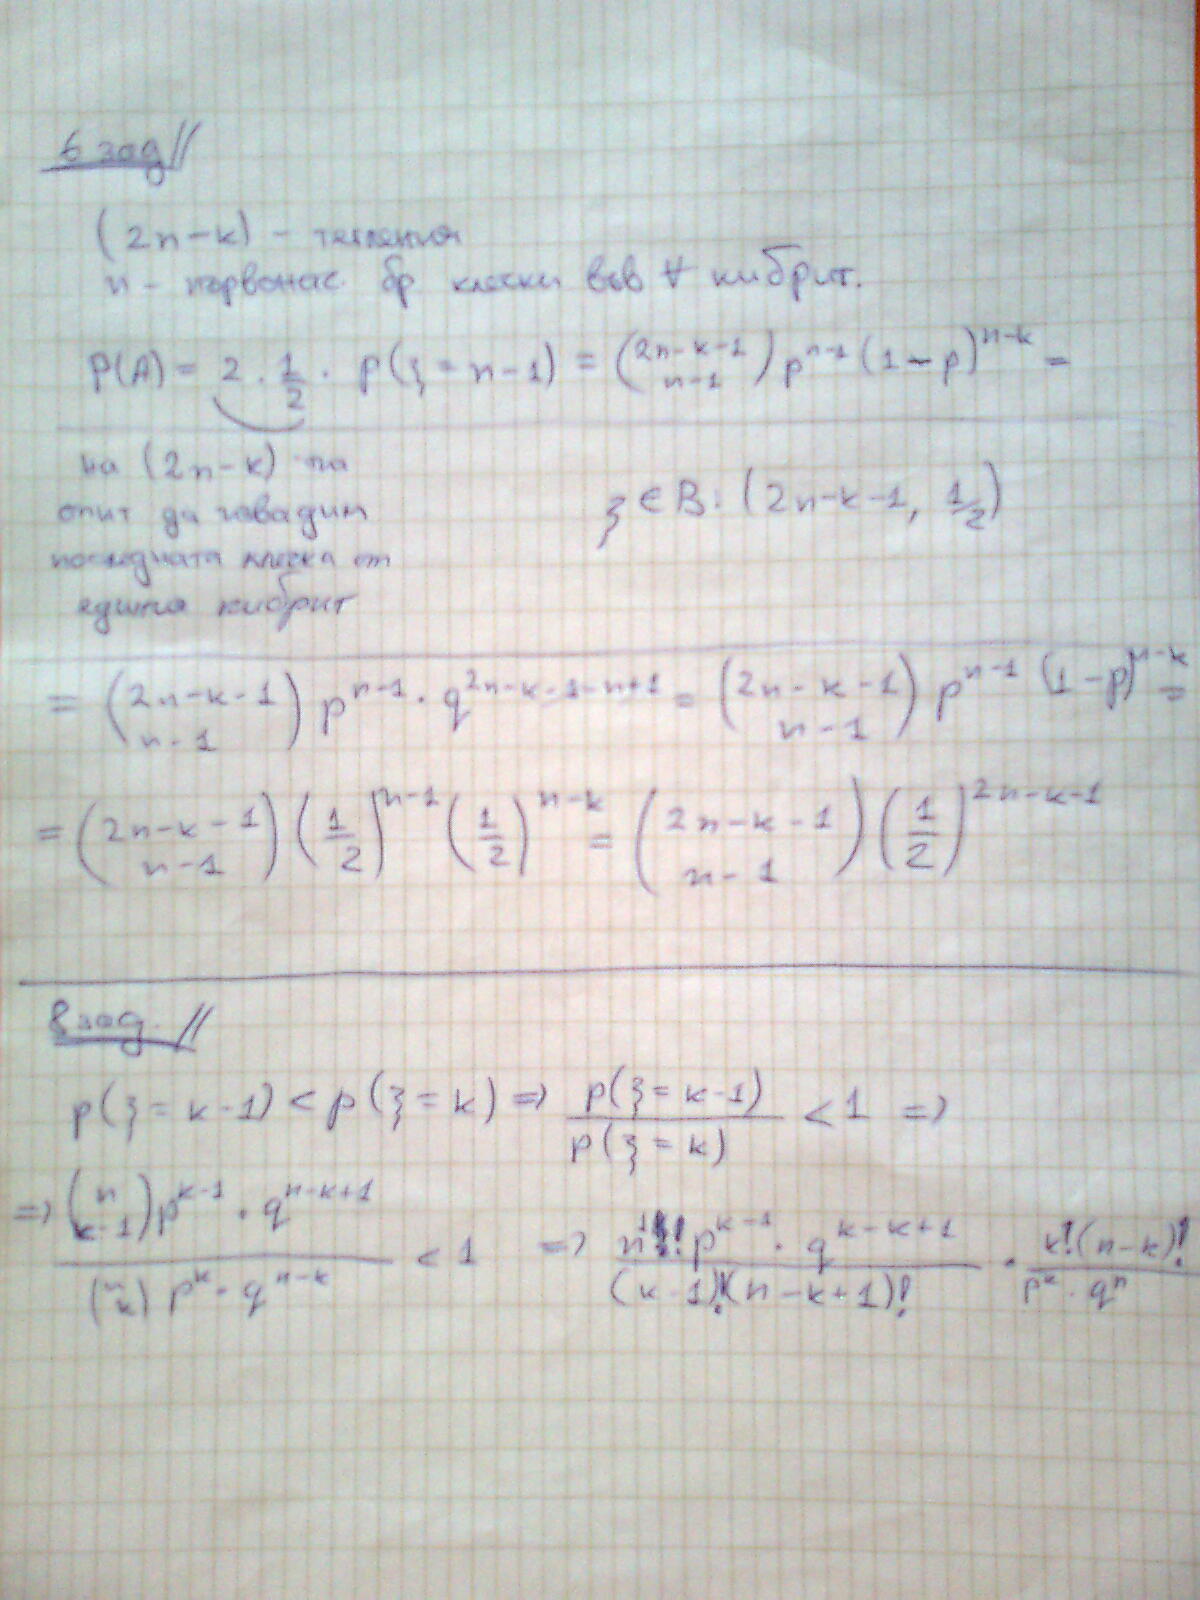 6 зад //
(2n-k) - тегления
n - първонач. бр клечки във ∀ кибрит.
P(A) = 2 . 1/2 . P(ξ = n-1) = (2n-k-1 над n-1) p^(n-1) (1-p)^(n-k) =
на (2n-k) -та
опит да извадим
последната клечка от
единия кибрит
ξ ∈ Bi (2n-k-1, 1/2)
= (2n-k-1 над n-1) p^(n-1) . q^(2n-k-1-n+1) = (2n-k-1 над n-1) p^(n-1) (1-p)^(n-k) =
= (2n-k-1 над n-1) (1/2)^(n-1) (1/2)^(n-k) = (2n-k-1 над n-1) (1/2)^(2n-k-1)
8 зад. //
P(ξ = k-1) < P(ξ = k) => P(ξ = k-1) / P(ξ = k) < 1 =>
=> (n над k-1) p^(k-1) . q^(n-k+1) / (n над k) p^k . q^(n-k) < 1 => n! p^(k-1) . q^(k-k+1) / (k-1)!(n-k+1)! . k!(n-k)! / p^k . q^n